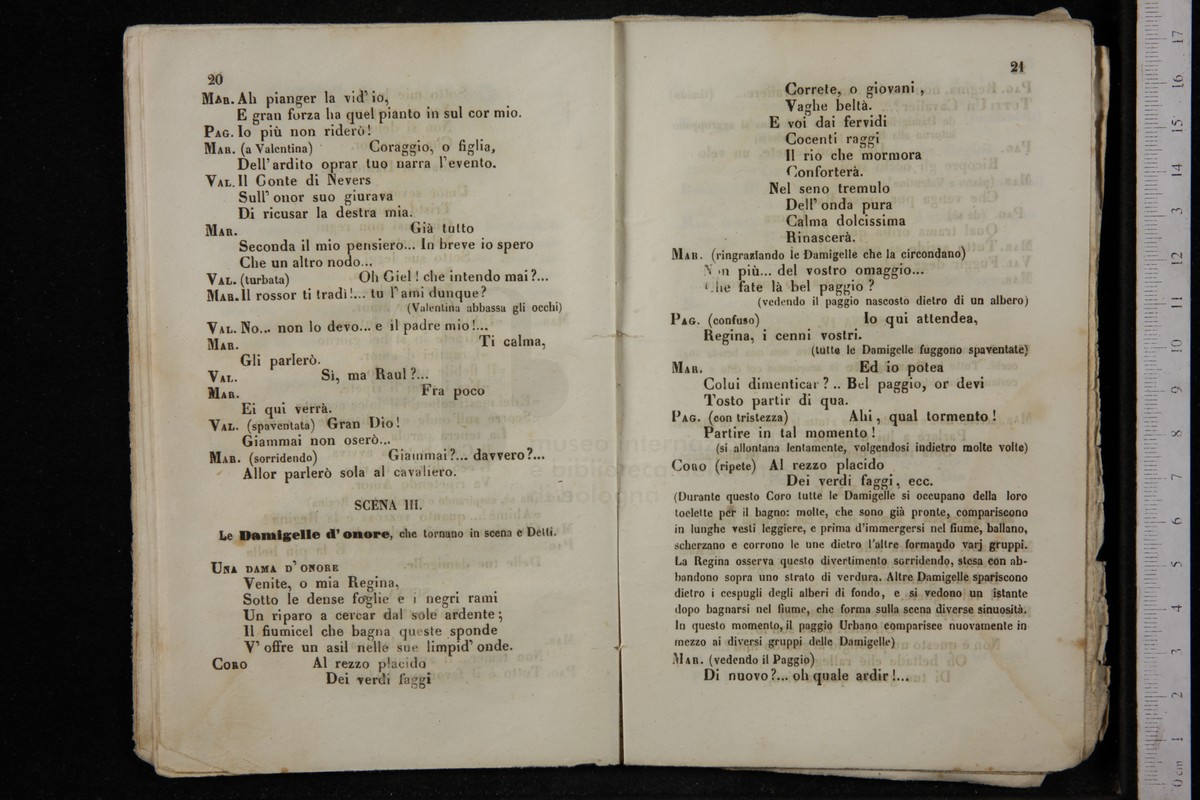 20
MAR. Ah pianger la vid' io,
E gran forza ha quel pianto in sul cor mio.
PAG. Io più non riderò!
MAR. (a Valentina) Coraggio, o figlia,
Dell' ardito oprar tuo narra l'evento.
VAL. Il Conte di Nevers
Sull' onor suo giurava
Di ricusar la destra mia.
MAR. Già tutto
Seconda il mio pensiero... In breve io spero
Che un altro nodo...
VAL. (turbata) Oh Ciel! che intendo mai?...
MAR. Il rossor ti tradì!... tu l'ami dunque?
(Valentina abbassa gli occhi)
VAL. No... non lo devo... e il padre mio!...
MAR. Ti calma,
Gli parlerò.
VAL. Sì, ma Raul?...
MAR. Fra poco
Ei qui verrà.
VAL. (spaventata) Gran Dio!
Giammai non oserò...
MAR. (sorridendo) Giammai?... davvero?...
Allor parlerò sola al cavaliero.
SCENA III.
Le Damigelle d' onore, che tornano in scena e Detti.
UNA DAMA D' ONORE
Venite, o mia Regina,
Sotto le dense foglie e i negri rami
Un riparo a cercar dal sole ardente;
Il fiumicel che bagna queste sponde
V' offre un asil nelle sue limpid' onde.
CORO Al rezzo placido
Dei verdi faggi
21
Correte, o giovani,
Vaghe beltà.
E voi dai fervidi
Cocenti raggi
Il rio che mormora
Conforterà.
Nel seno tremulo
Dell' onda pura
Calma dolcissima
Rinascerà.
MAR. (ringraziando le Damigelle che la circondano)
Non più... del vostro omaggio...
Che fate là bel paggio?
(vedendo il paggio nascosto dietro di un albero)
PAG. (confuso) Io qui attendea,
Regina, i cenni vostri.
(tutte le Damigelle fuggono spaventate)
MAR. Ed io potea
Colui dimenticar?.. Bel paggio, or devi
Tosto partir di qua.
PAG. (con tristezza) Ahi, qual tormento!
Partire in tal momento!
(si allontana lentamente, volgendosi indietro molte volte)
CORO (ripete) Al rezzo placido
Dei verdi faggi, ecc.
(Durante questo Coro tutte le Damigelle si occupano della loro
toelette per il bagno: molte, che sono già pronte, compariscono
in lunghe vesti leggiere, e prima d'immergersi nel fiume, ballano,
scherzano e corrono le une dietro l'altre formando varj gruppi.
La Regina osserva questo divertimento sorridendo, stesa con ab-
bandono sopra uno strato di verdura. Altre Damigelle spariscono
dietro i cespugli degli alberi di fondo, e si vedono un istante
dopo bagnarsi nel fiume, che forma sulla scena diverse sinuosità.
In questo momento, il paggio Urbano comparisce nuovamente in
mezzo ai diversi gruppi delle Damigelle)
MAR. (vedendo il Paggio)
Di nuovo?... oh quale ardir!...